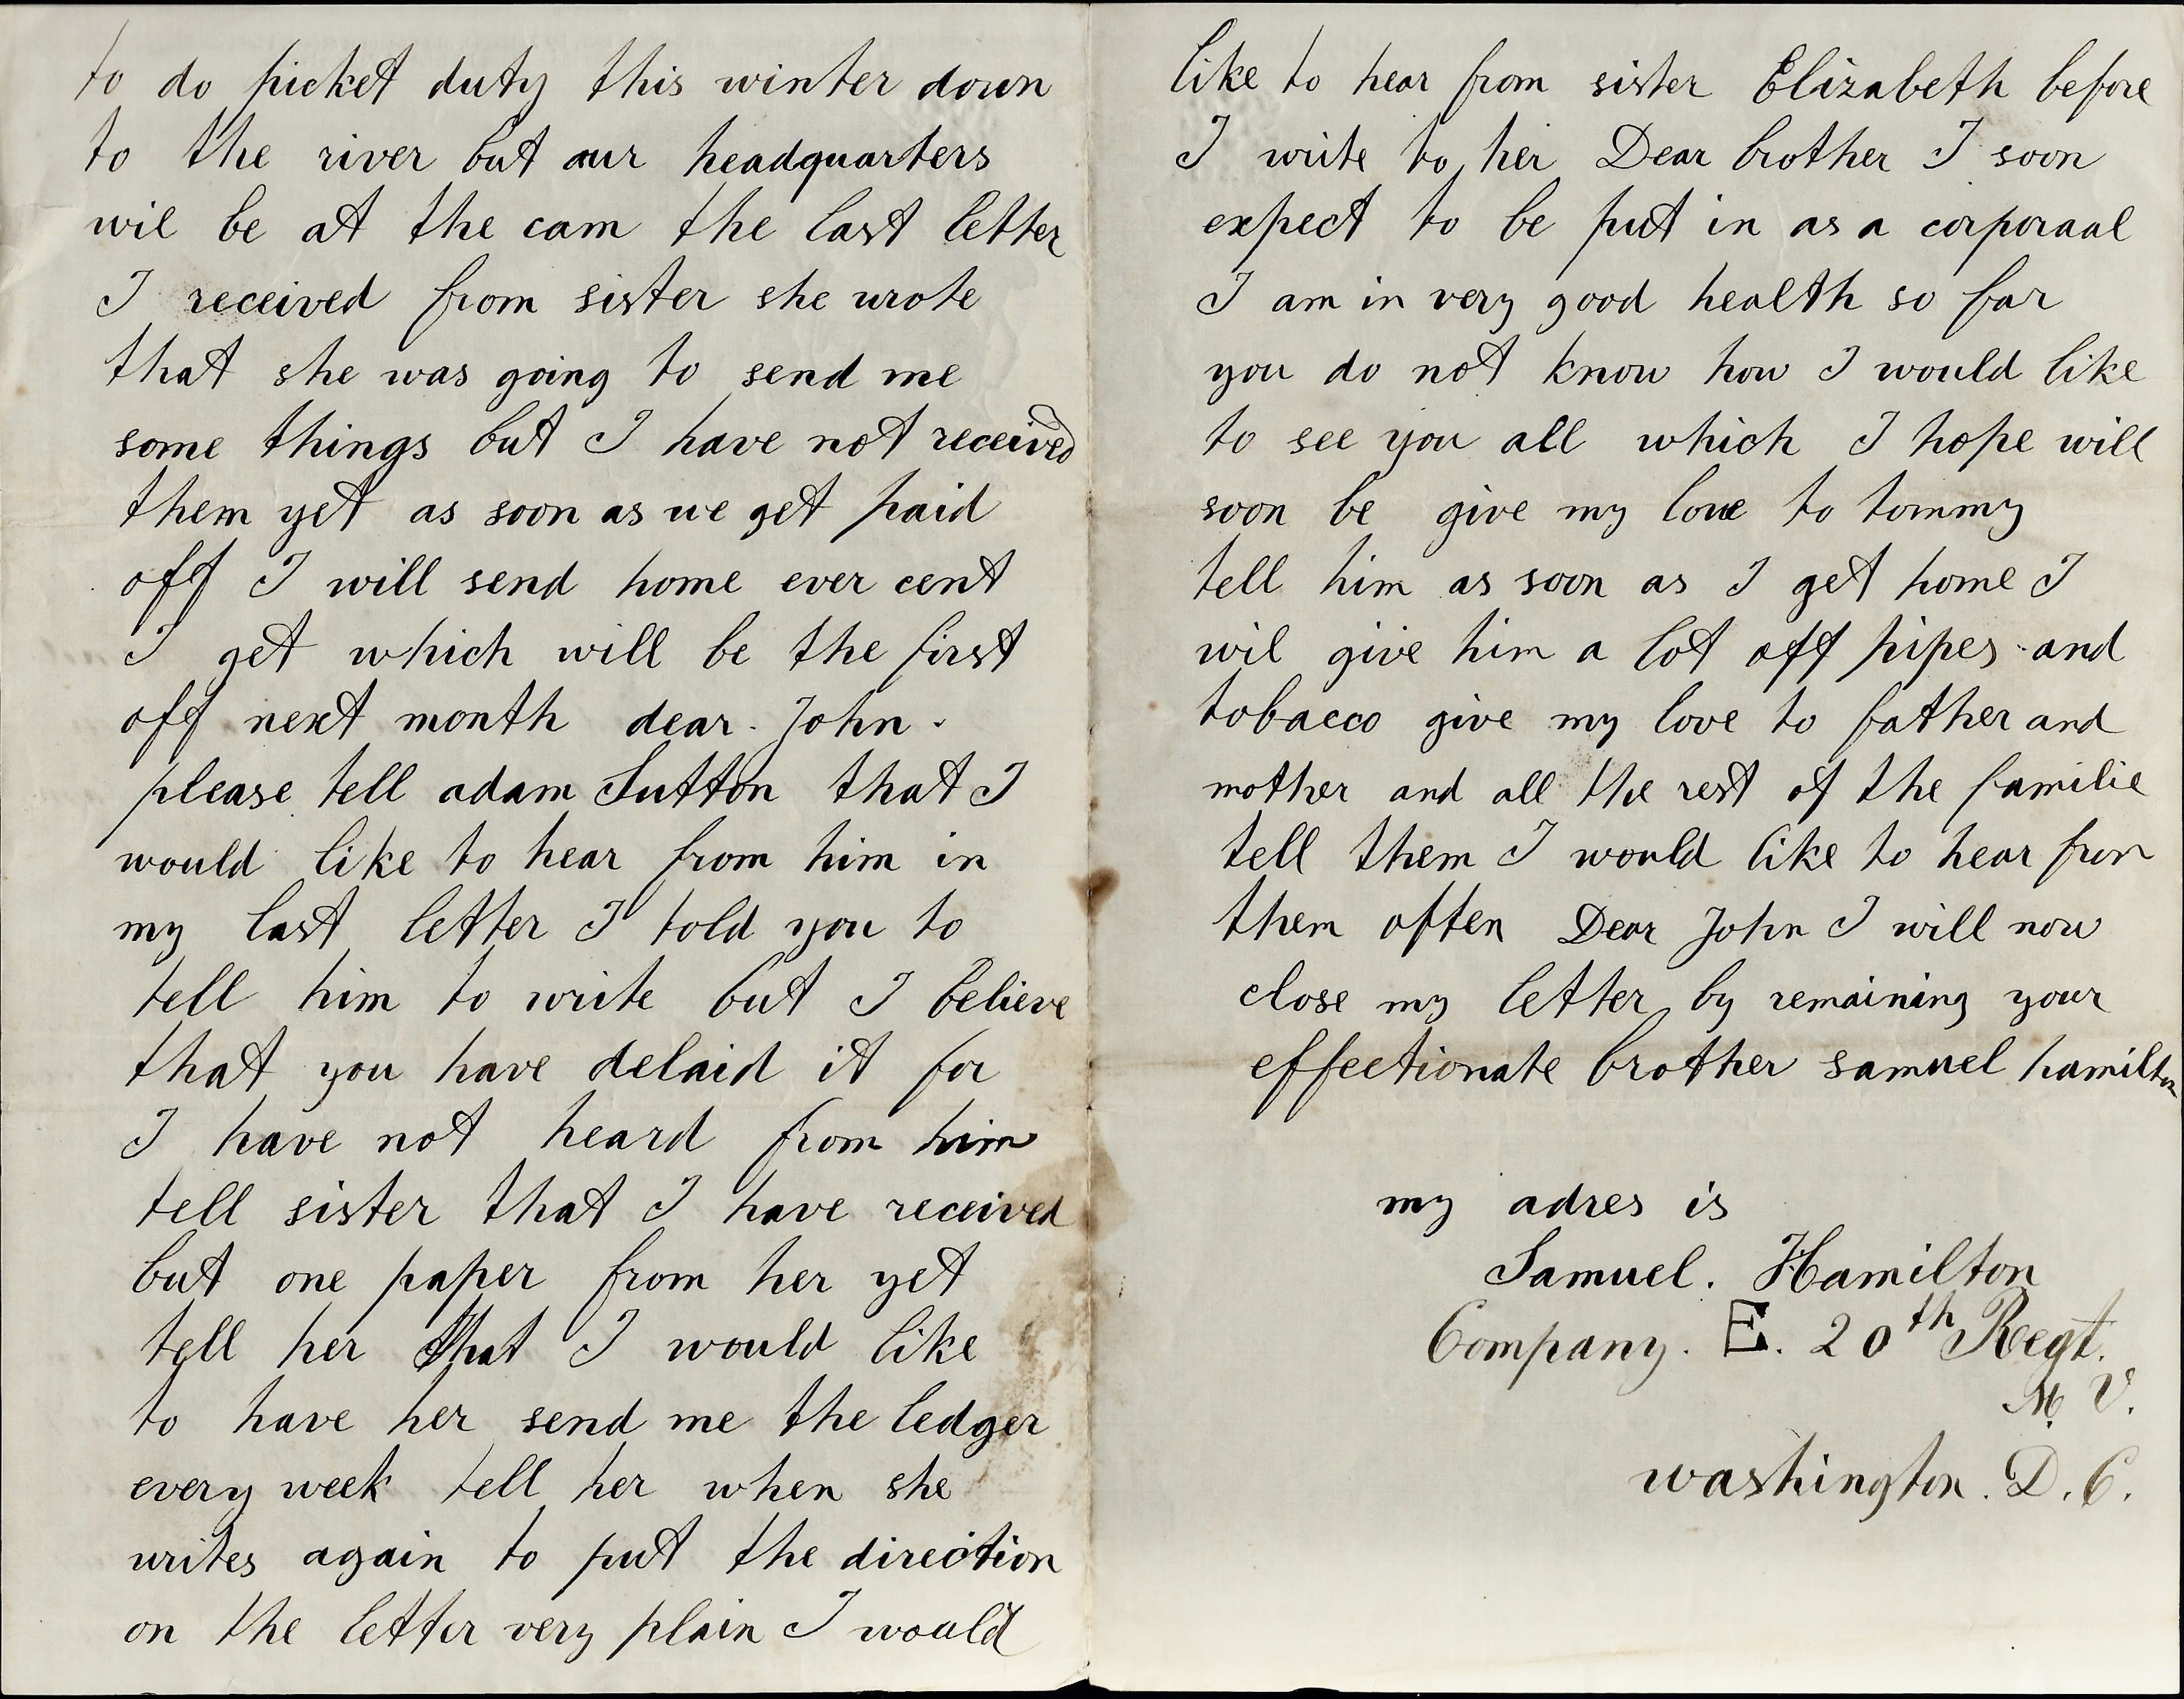 to do picket duty this winter down
to the river but our headquarters
wil be at the cam the last letter
I received from sister she wrote
that she was going to send me
some things but I have not received
them yet as soon as we get paid
off I will send home ever cent
I get which will be the first
off next month dear. John.
please tell adam Sutton that I
would like to hear from him in
my last letter I told you to
tell him to write but I believe
that you have delaid it for
I have not heard from him
tell sister that I have received
but one paper from her yet
tell her that I would like
to have her send me the ledger
every week tell her when she
writes again to put the direction
on the letter very plain I would
like to hear from sister Elizabeth before
I write to her Dear brother I soon
expect to be put in as a corporaal
I am in very good health so far
you do not know how I would like
to see you all which I hope will
soon be give my love to tommy
tell him as soon as I get home I
wil give him a lot off pipes and
tobacco give my love to father and
mother and all the rest of the familie
tell them I would like to hear from
them often Dear John I will now
close my letter by remaining your
effectionate brother samuel hamilton
my adres is
Samuel. Hamilton
Company. E. 20th Regt.
M. V.
washington. D. C.